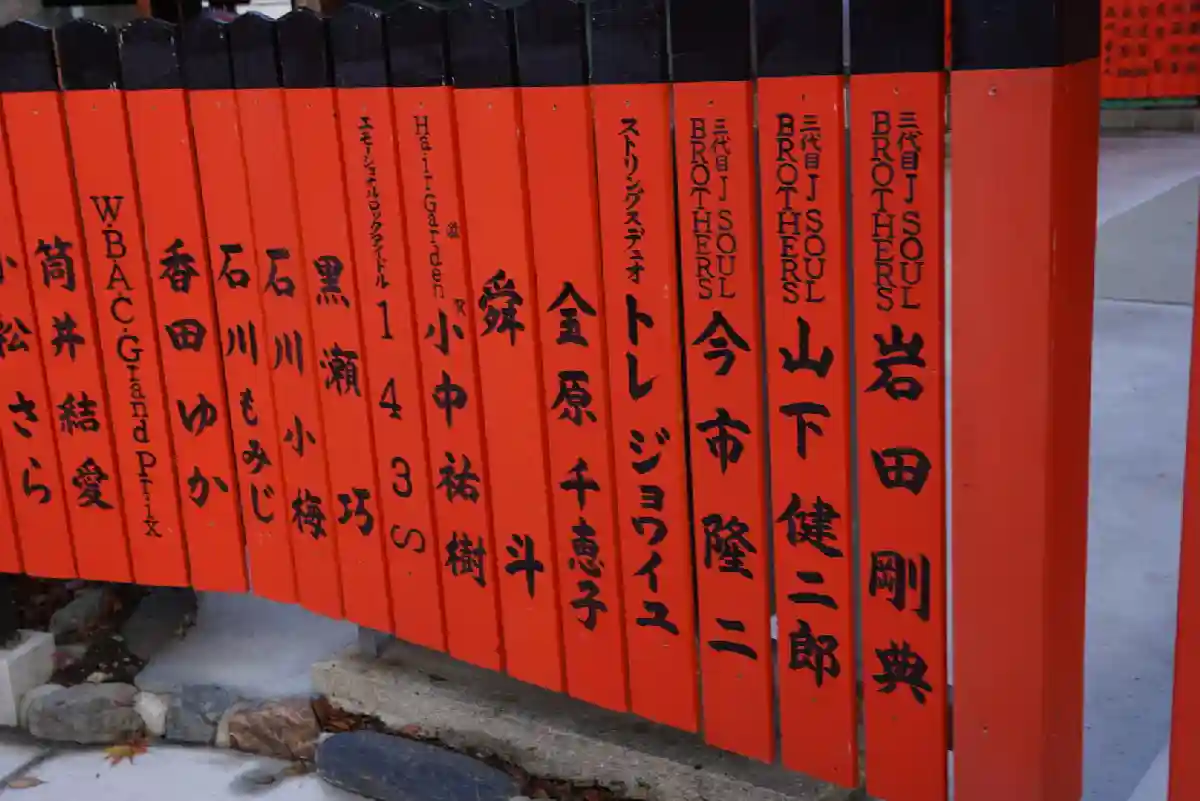 三代目J SOUL
BROTHERS
岩田剛典
三代目J SOUL
BROTHERS
山下健二郎
三代目J SOUL
BROTHERS
今市隆二
ストリングスデュオ
トレ ジョワイユ
金原千恵子
舜斗
Hair Garden
小中祐樹
エモーショナルロックアイドル
143S
黒瀬巧
石川小梅
石川もみじ
香田ゆか
W.B.A.C.Grand Prix
筒井結愛
小松さら